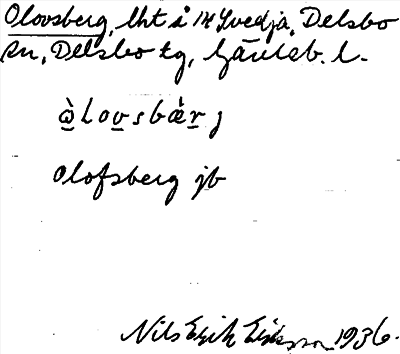 Olovsberg, lht å 1/4 Svedja, Delsbo
sn, Delsbo tg, Gävleb. l.
ò̱lov̱sbæ̀ṟj
Olofsberg jb
Nils Erik Eriksson 1936.